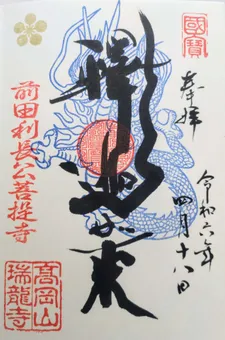 國寶
奉拝
令和六年
四月十八日
釋迦如来
前田利長公菩提寺
高岡山
瑞龍寺